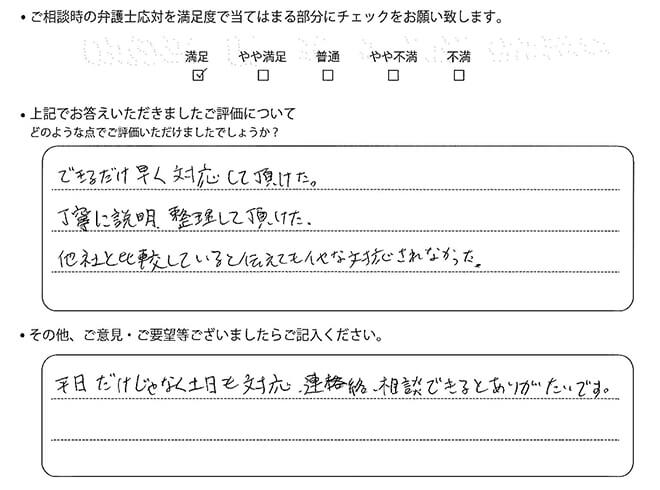 • ご相談時の弁護士応対を満足度で当てはまる部分にチェックをお願い致します。
満足 やや満足 普通 やや不満 不満
☑ ☐ ☐ ☐ ☐
• 上記でお答えいただきましたご評価について
どのような点でご評価いただけましたでしょうか？
できるだけ早く対応して頂けた。
丁寧に説明、整理して頂けた、
他社と比較していると伝えても な対応されなかった。
• その他、ご意見・ご要望等ございましたらご記入ください。
平日だけじゃなく土日も対応、連絡 、相談できるとありがたいです。